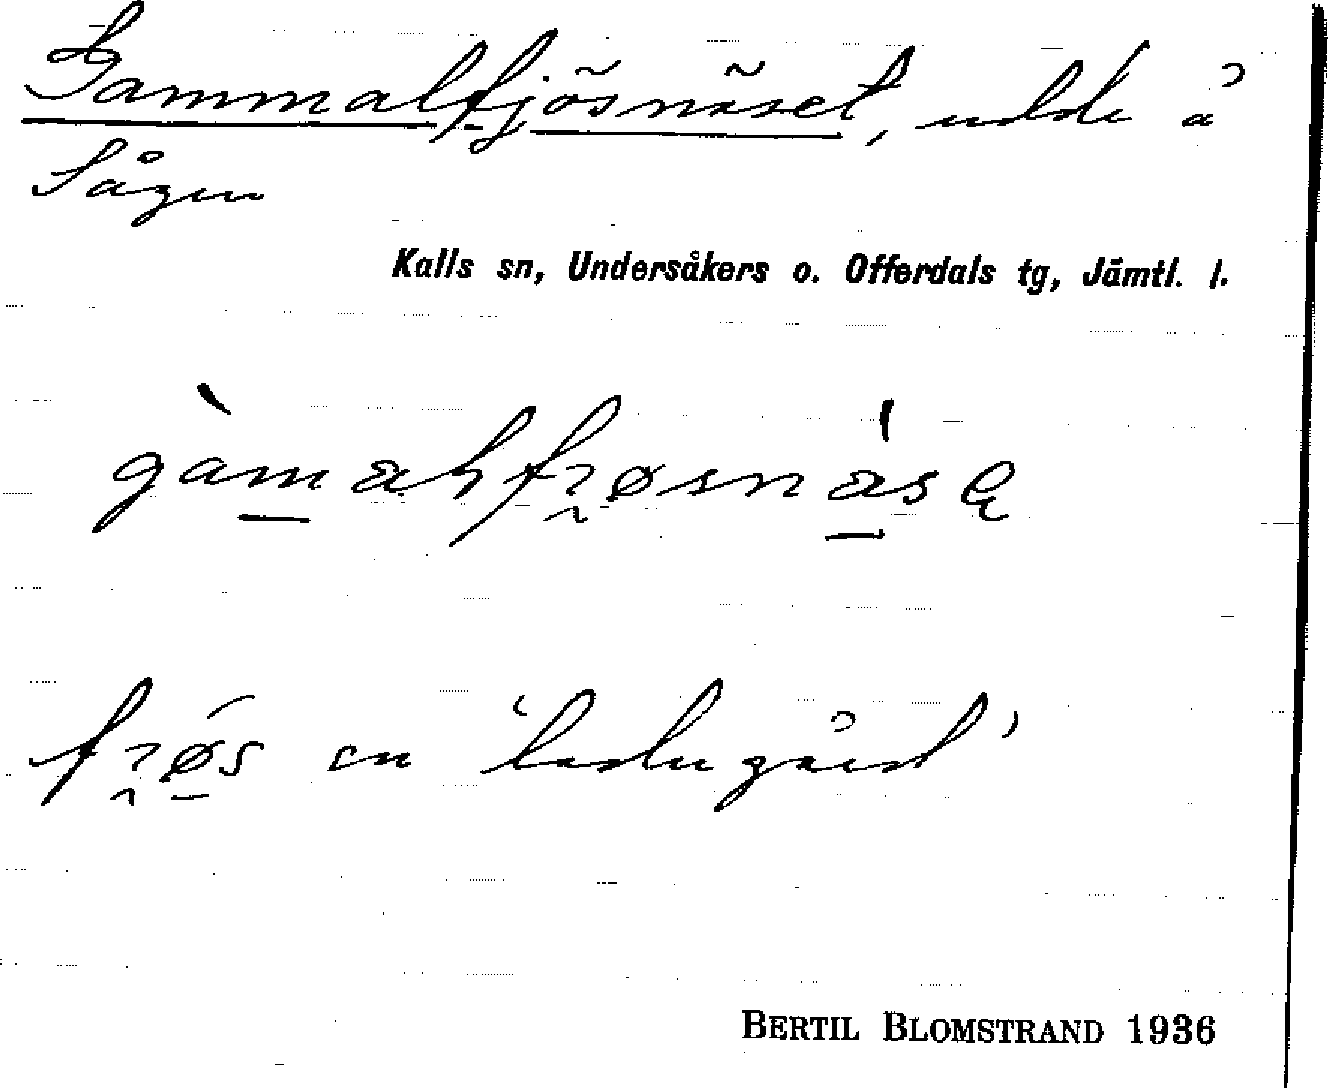 Gammalfjösnäset, udde å
Sågen
Kalls sn, Undersåkers o. Offerdals tg, Jämtl. l.
en 'ladugård'
BERTIL BLOMSTRAND 1936